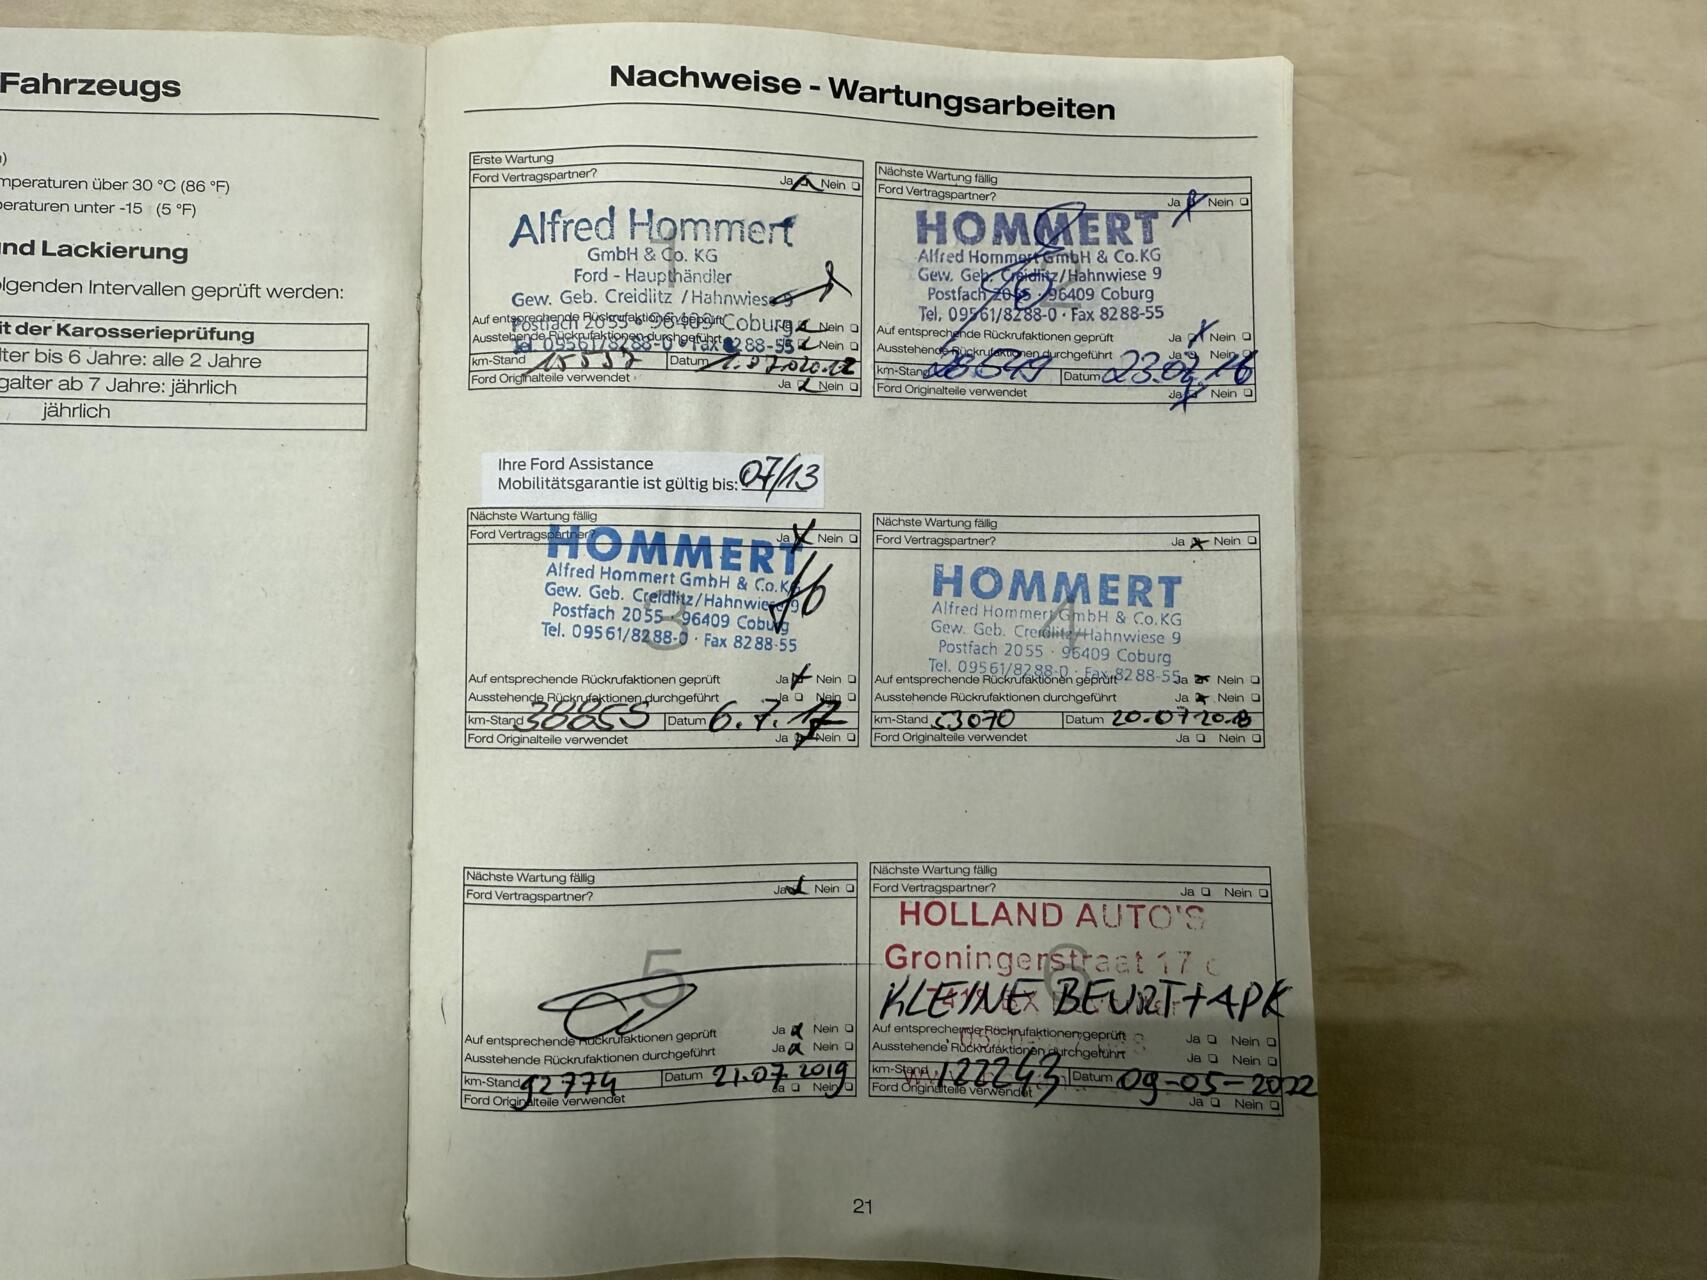 Fahrzeugs
mperaturen über 30 °C (86 °F)
eraturen unter -15 (5 °F)
nd Lackierung
lgenden Intervallen geprüft werden:
it der Karosserieprüfung
lter bis 6 Jahre: alle 2 Jahre
galter ab 7 Jahre: jährlich
jährlich
Nachweise - Wartungsarbeiten
Erste Wartung
Ford Vertragspartner? Ja Nein
1
Alfred Hommert
GmbH & Co. KG
Ford - Haupthändler
Gew. Geb. Creidlitz / Hahnwiese 9
Postfach 2055 - 96409 Coburg
Tel. 09561/8288-0 • Fax 8288-55
Auf entsprechende Rückrufaktionen geprüft Ja Nein
Ausstehende Rückrufaktionen durchgeführt Ja Nein
km-Stand 15557 Datum
Ford Originalteile verwendet Ja Nein
Nächste Wartung fällig
Ford Vertragspartner? Ja Nein
2
HOMMERT
Alfred Hommert GmbH & Co.KG
Gew. Geb. Creidlitz/Hahnwiese 9
Postfach 2055 · 96409 Coburg
Tel. 09561/8288-0 · Fax 8288-55
Auf entsprechende Rückrufaktionen geprüft Ja Nein
Ausstehende Rückrufaktionen durchgeführt Ja Nein
km-Stand Datum 23.02.16
Ford Originalteile verwendet Ja Nein
Ihre Ford Assistance
Mobilitätsgarantie ist gültig bis: 07/13
Nächste Wartung fällig
Ford Vertragspartner? Ja Nein
3
HOMMERT
Alfred Hommert GmbH & Co.KG
Gew. Geb. Creidlitz/Hahnwiese 9
Postfach 2055 · 96409 Coburg
Tel. 09561/8288-0 · Fax 8288-55
Auf entsprechende Rückrufaktionen geprüft Ja Nein
Ausstehende Rückrufaktionen durchgeführt Ja Nein
km-Stand 38855 Datum 6.7.17
Ford Originalteile verwendet Ja Nein
Nächste Wartung fällig
Ford Vertragspartner? Ja Nein
4
HOMMERT
Alfred Hommert GmbH & Co.KG
Gew. Geb. Creidlitz/Hahnwiese 9
Postfach 2055 · 96409 Coburg
Tel. 09561/8288-0 · Fax 8288-55
Auf entsprechende Rückrufaktionen geprüft Ja Nein
Ausstehende Rückrufaktionen durchgeführt Ja Nein
km-Stand 53070 Datum 20.07.2018
Ford Originalteile verwendet Ja Nein
Nächste Wartung fällig
Ford Vertragspartner? Ja Nein
5
Auf entsprechende Rückrufaktionen geprüft Ja Nein
Ausstehende Rückrufaktionen durchgeführt Ja Nein
km-Stand 92774 Datum 21.07.2019
Ford Originalteile verwendet Ja Nein
Nächste Wartung fällig
Ford Vertragspartner? Ja Nein
6
HOLLAND AUTO'S
Groningerstraat 17
KLEINE BEURT + APK
Auf entsprechende Rückrufaktionen geprüft Ja Nein
Ausstehende Rückrufaktionen durchgeführt Ja Nein
km-Stand 122243 Datum 09-05-2022
Ford Originalteile verwendet Ja Nein
21